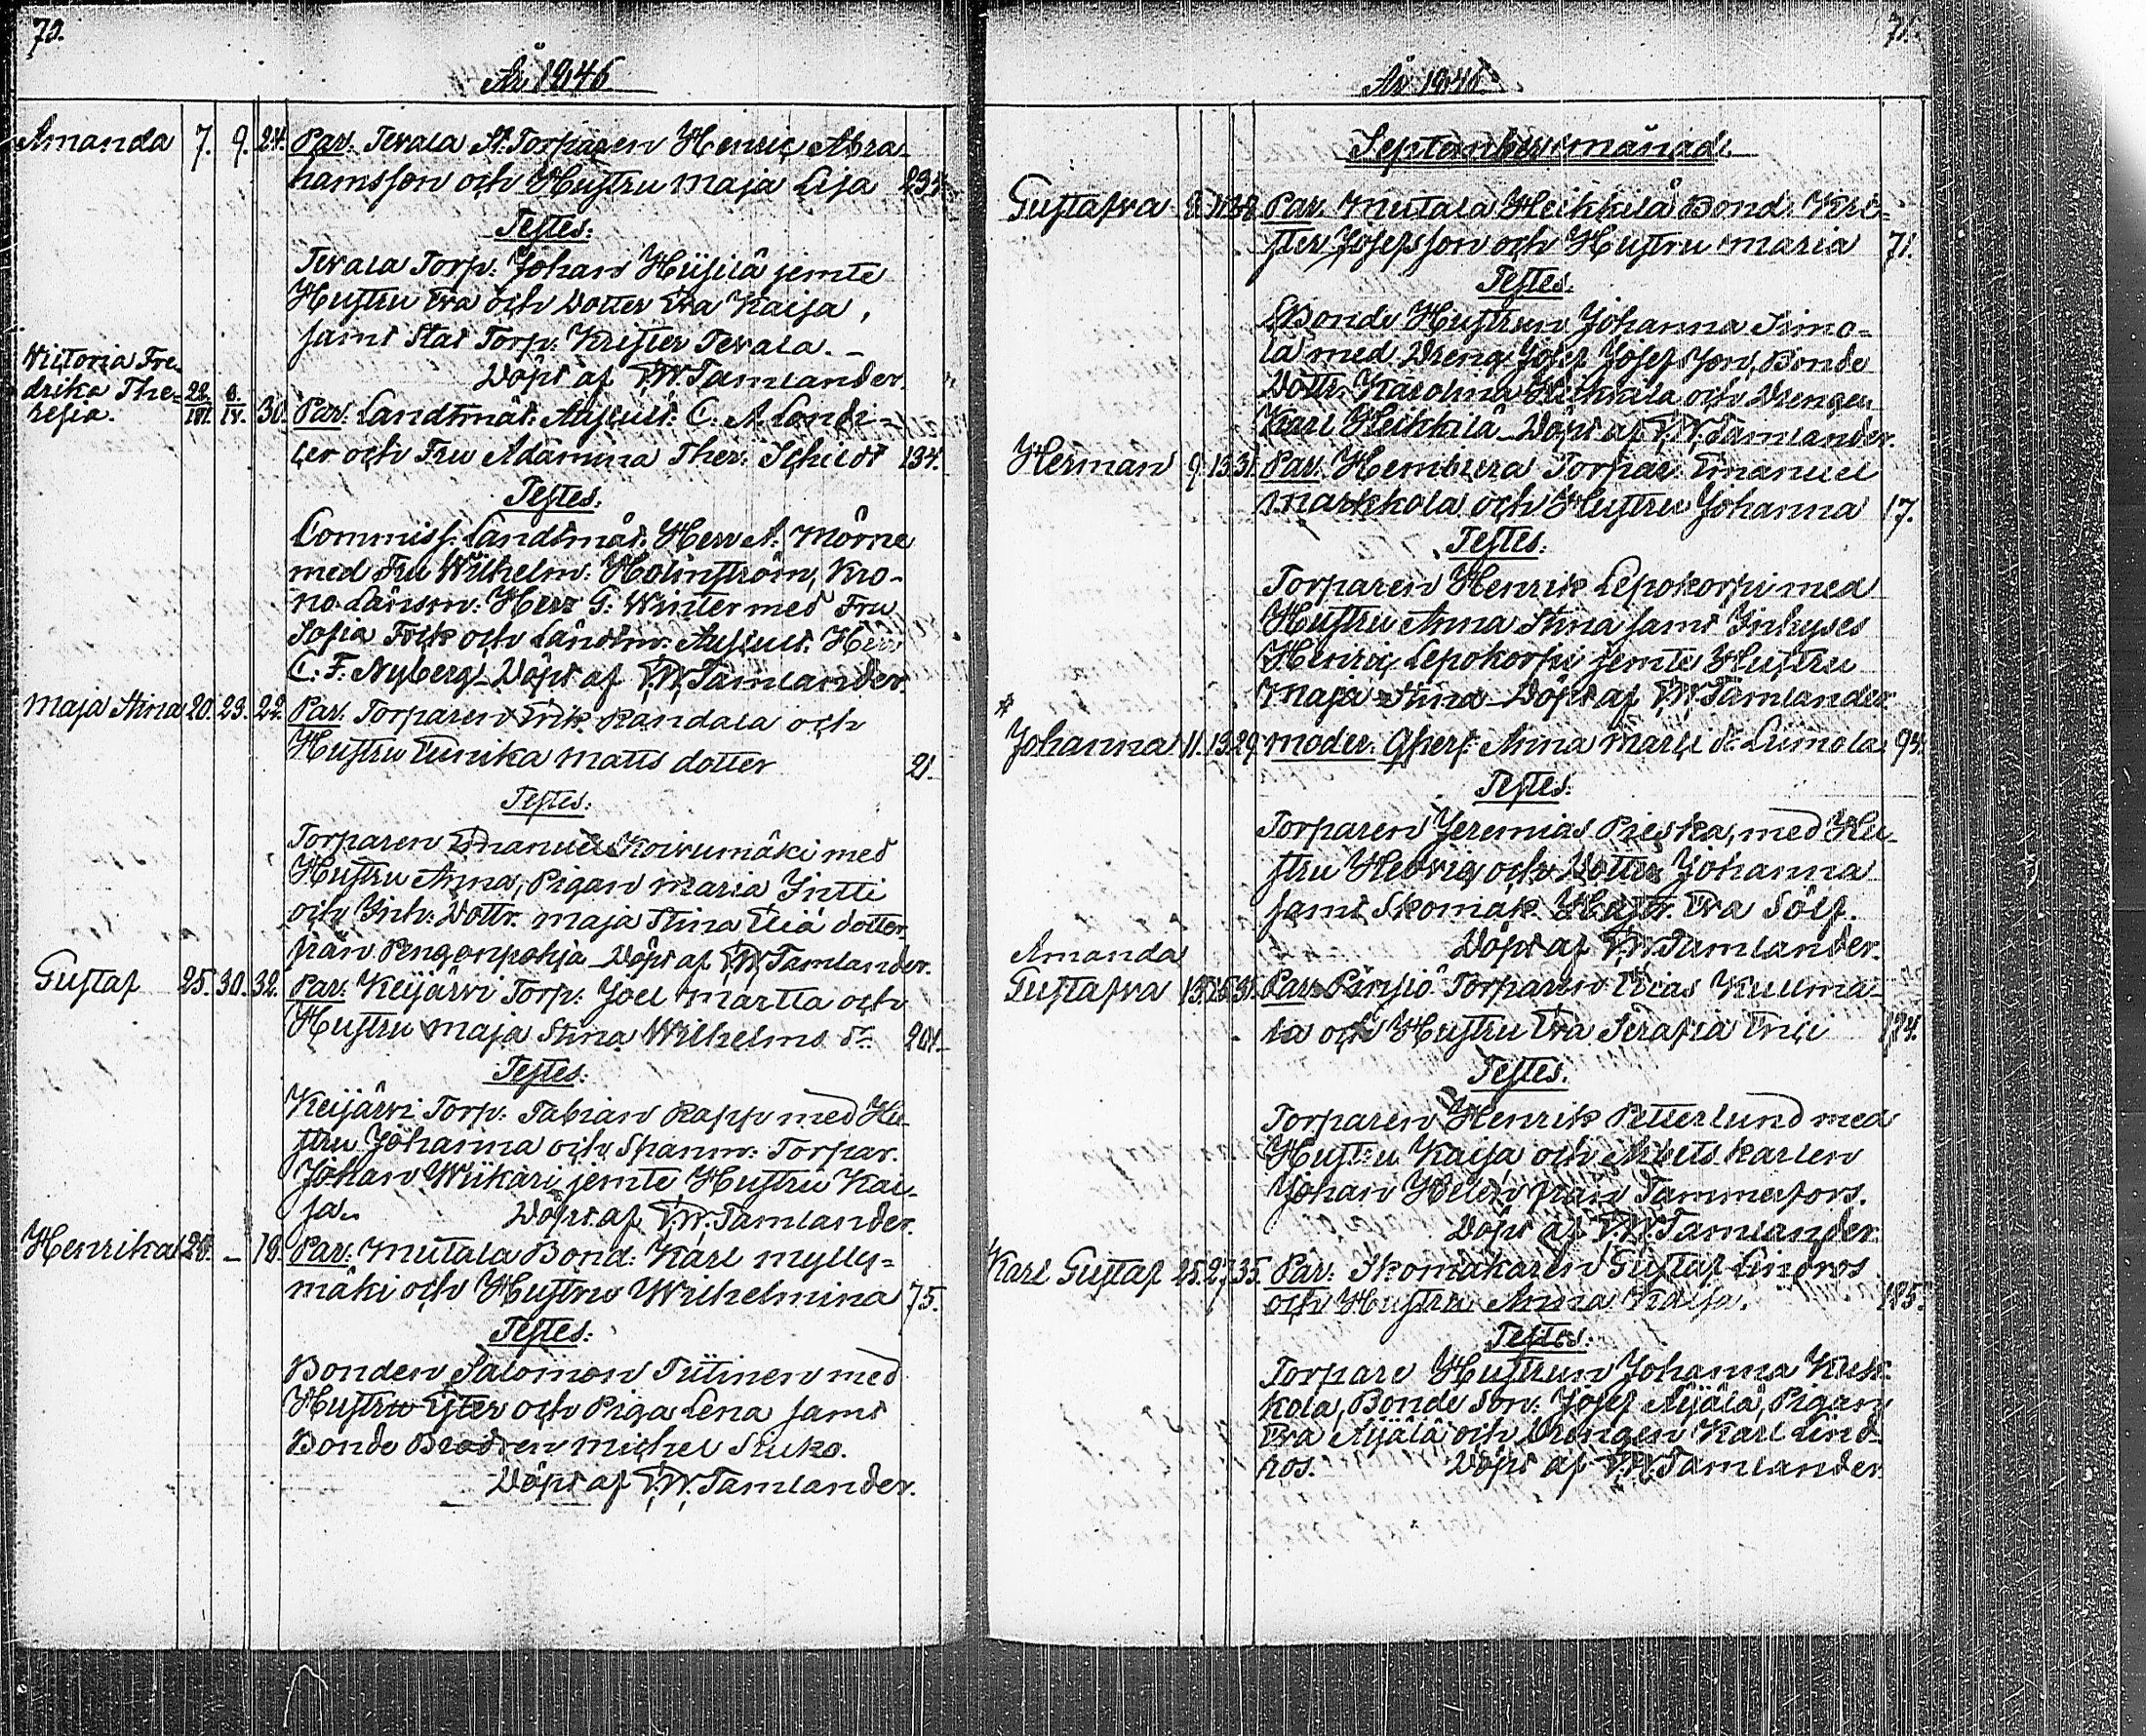 70.
År 1846.
Amanda 7. 9. 24. Par. Tevala St. Torparen Henric Abra-
hamsson och Hustru Maja Lisa 235.
Testes:
Tevala Torp: Johan Hiisilä jemte
Hustru Eva och Dotter Eva Kaisa,
samt Stat Torp: Krister Tevala. –
Döpt af F.W. Tamlander.
Victoria Fre-
drika The-
resia. 30. Par. Landtmät. Auscult. C. A. Londi-
cer och Fru Adamina Ther. Schildt 134.
Testes:
Commiss. Landtmät. Herr A. Mörne
med Fru Wilhelm: Holmström, Kro-
no Länsm: Herr G: Winter med Fru
Sofia Frik och Landtm: Auscult. Herr
C. F. Nyberg. Döpt af F.W. Tamlander.
Maja Stina 20. 23. 22. Par. Torparen Erik Randala och
Hustru Ulrika Matts dotter 21.
Testes:
Torparen Emanuel Koivumäki med
Hustru Anna, Pigan Maria Intti
och Inh: Dottr. Maja Stina Eliä dotter
från Pengonpohja. Döpt af F.W. Tamlander.
Gustaf 25. 30. 32. Par. Keijärvi Torp: Joel Martla och
Hustru Maja Stina Wilhelms dr. 201.
Testes:
Keijärvi Torp: Fabian Rapp med Hu-
stru Johanna och Spanm: Torpar.
Johan Wiikari jemte Hustru Kai-
sa. Döpt af F.W. Tamlander.
Henrika 28. – 18. Par: Mutala Bond: Karl Mylly-
mäki och Hustru Wilhelmina 75.
Testes:
Bonden Salomon Tiitinen med
Hustru Ester och Piga Lena samt
Bonde Brodren Michel Siuko.
Döpt af F.W. Tamlander.
71.
År 1846.
September månad.
Gustafva 8. 11. 38. Par. Mutala Heikkilä Bond: Kri-
ster Josefsson och Hustru Maria 71.
Testes.
Bonde Hustrun Johanna Simo-
la med Dreng Josef Josefsson, Bonde
Dottr. Karolina Heikkilä och Drengen
Karl Heikkilä. Döpt af F.W. Tamlander.
Herman 9. 13. 31. Par. Hembura Torpar: Emanuel
Markkola och Hustru Johanna 17.
Testes:
Torparen Henrik Lepokorpi med
Hustru Anna Stina samt Inhyses
Henric Lepokorpi jemte Hustru
Maja Stina. Döpt af F.W. Tamlander.
*
Johanna 11. 13. 29. Moder. Qhers: Anna Marie dr. Liimola 94.
Testes:
Torparen Jeremias Pieska, med Hu-
stru Hedvig och Dotter Johanna
samt Skomak. Hustr. Eva Sölf.
Döpt af F.W. Tamlander.
Amanda
Gustafva 13. 26. 31. Par. Pärsjö Torparen Elias Kuuma-
la och Hustru Eva Serafia Erici 124.
Testes.
Torparen Henrik Petterlund med
Hustru Kaisa och Arbets karlen
Johan Helen från Tammerfors.
Döpt af F.W. Tamlander
Karl Gustaf 25. 27. 35. Par. Skomakaren Gustaf Lindros
och Hustru Anna Kaisa. 185.
Testes:
Torpare Hustrun Johanna Kusk-
kola, Bonde Son: Josef Äijälä, Pigan
Eva Äijälä och Drengen Karl Lind-
ros. Döpt af F.W. Tamlander.